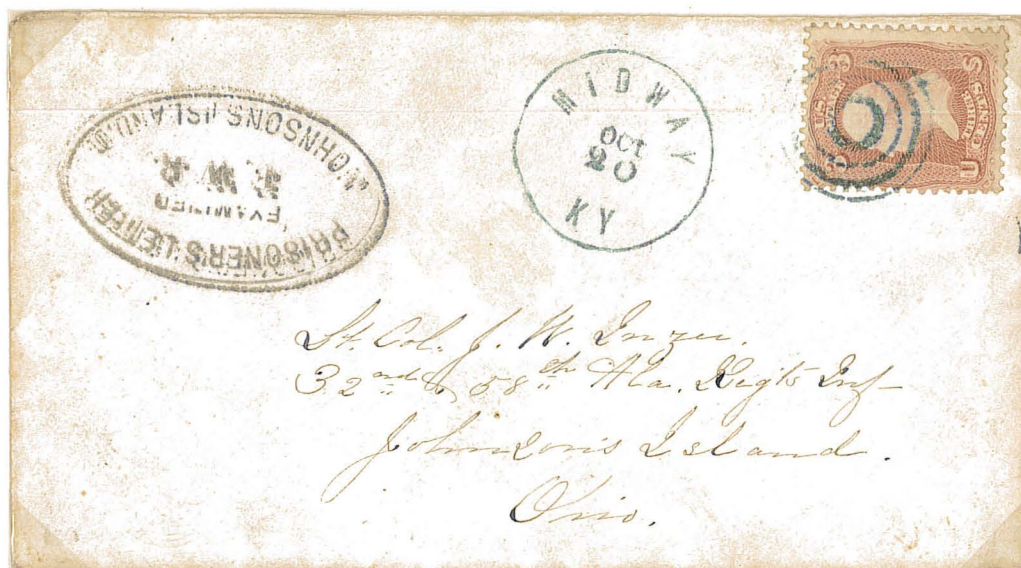 PRISONER'S LETTER
EXAMINED
JOHNSONS ISLAND, O.
MIDWAY
OCT
20
KY
U.S.
3
Lt. Col. J. W. Inzer.
32nd & 58th Ala. Regts Inf
Johnson's Island.
Ohio.